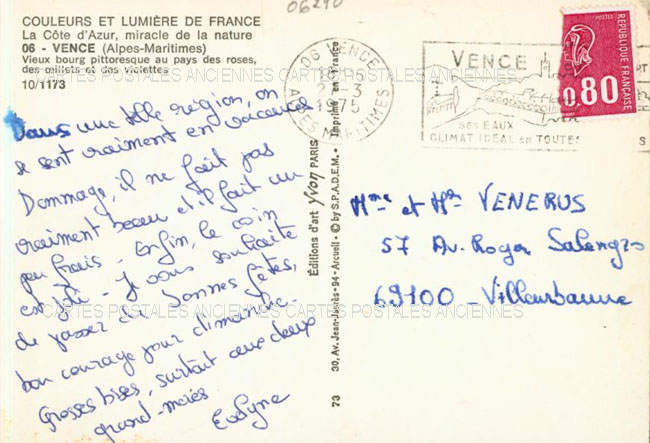 06240
COULEURS ET LUMIÈRE DE FRANCE
La Côte d'Azur, miracle de la nature
06 - VENCE (Alpes-Maritimes)
Vieux bourg pittoresque au pays des roses,
des œillets et des violettes
10/1173
CARTES POSTALES ANCIENNES CARTES POSTALES ANCIENNES CARTES POSTALES ANCIENNES
Dans une telle région, on
se sent vraiment en vacances
Dommage, il ne fait pas
vraiment beau et il fait un
peu frais. Enfin, le coin
est joli - Je vous souhaite
de passer de bonnes fêtes,
bon courage pour dimanche.
Grosses bises, surtout aux deux
grand-mères
Evelyne
CARTES POSTALES ANCIENNES CARTES POSTALES ANCIENNES CARTES POSTALES ANCIENNES
Editions d'art yvon PARIS
30, Av. Jean-Jaurès - 94 - Arcueil - © by S.P.A.D.E.M. - Imprimé en France
73
06 VENCE
1975
ALPES MARITIMES
VENCE
ses EAUX
CLIMAT IDÉAL en TOUTES
S
POSTES
REPUBLIQUE FRANÇAISE
0.80
Mme et Mr VENERUS
57 Av. Roger Salengro
69100 - Villeurbanne